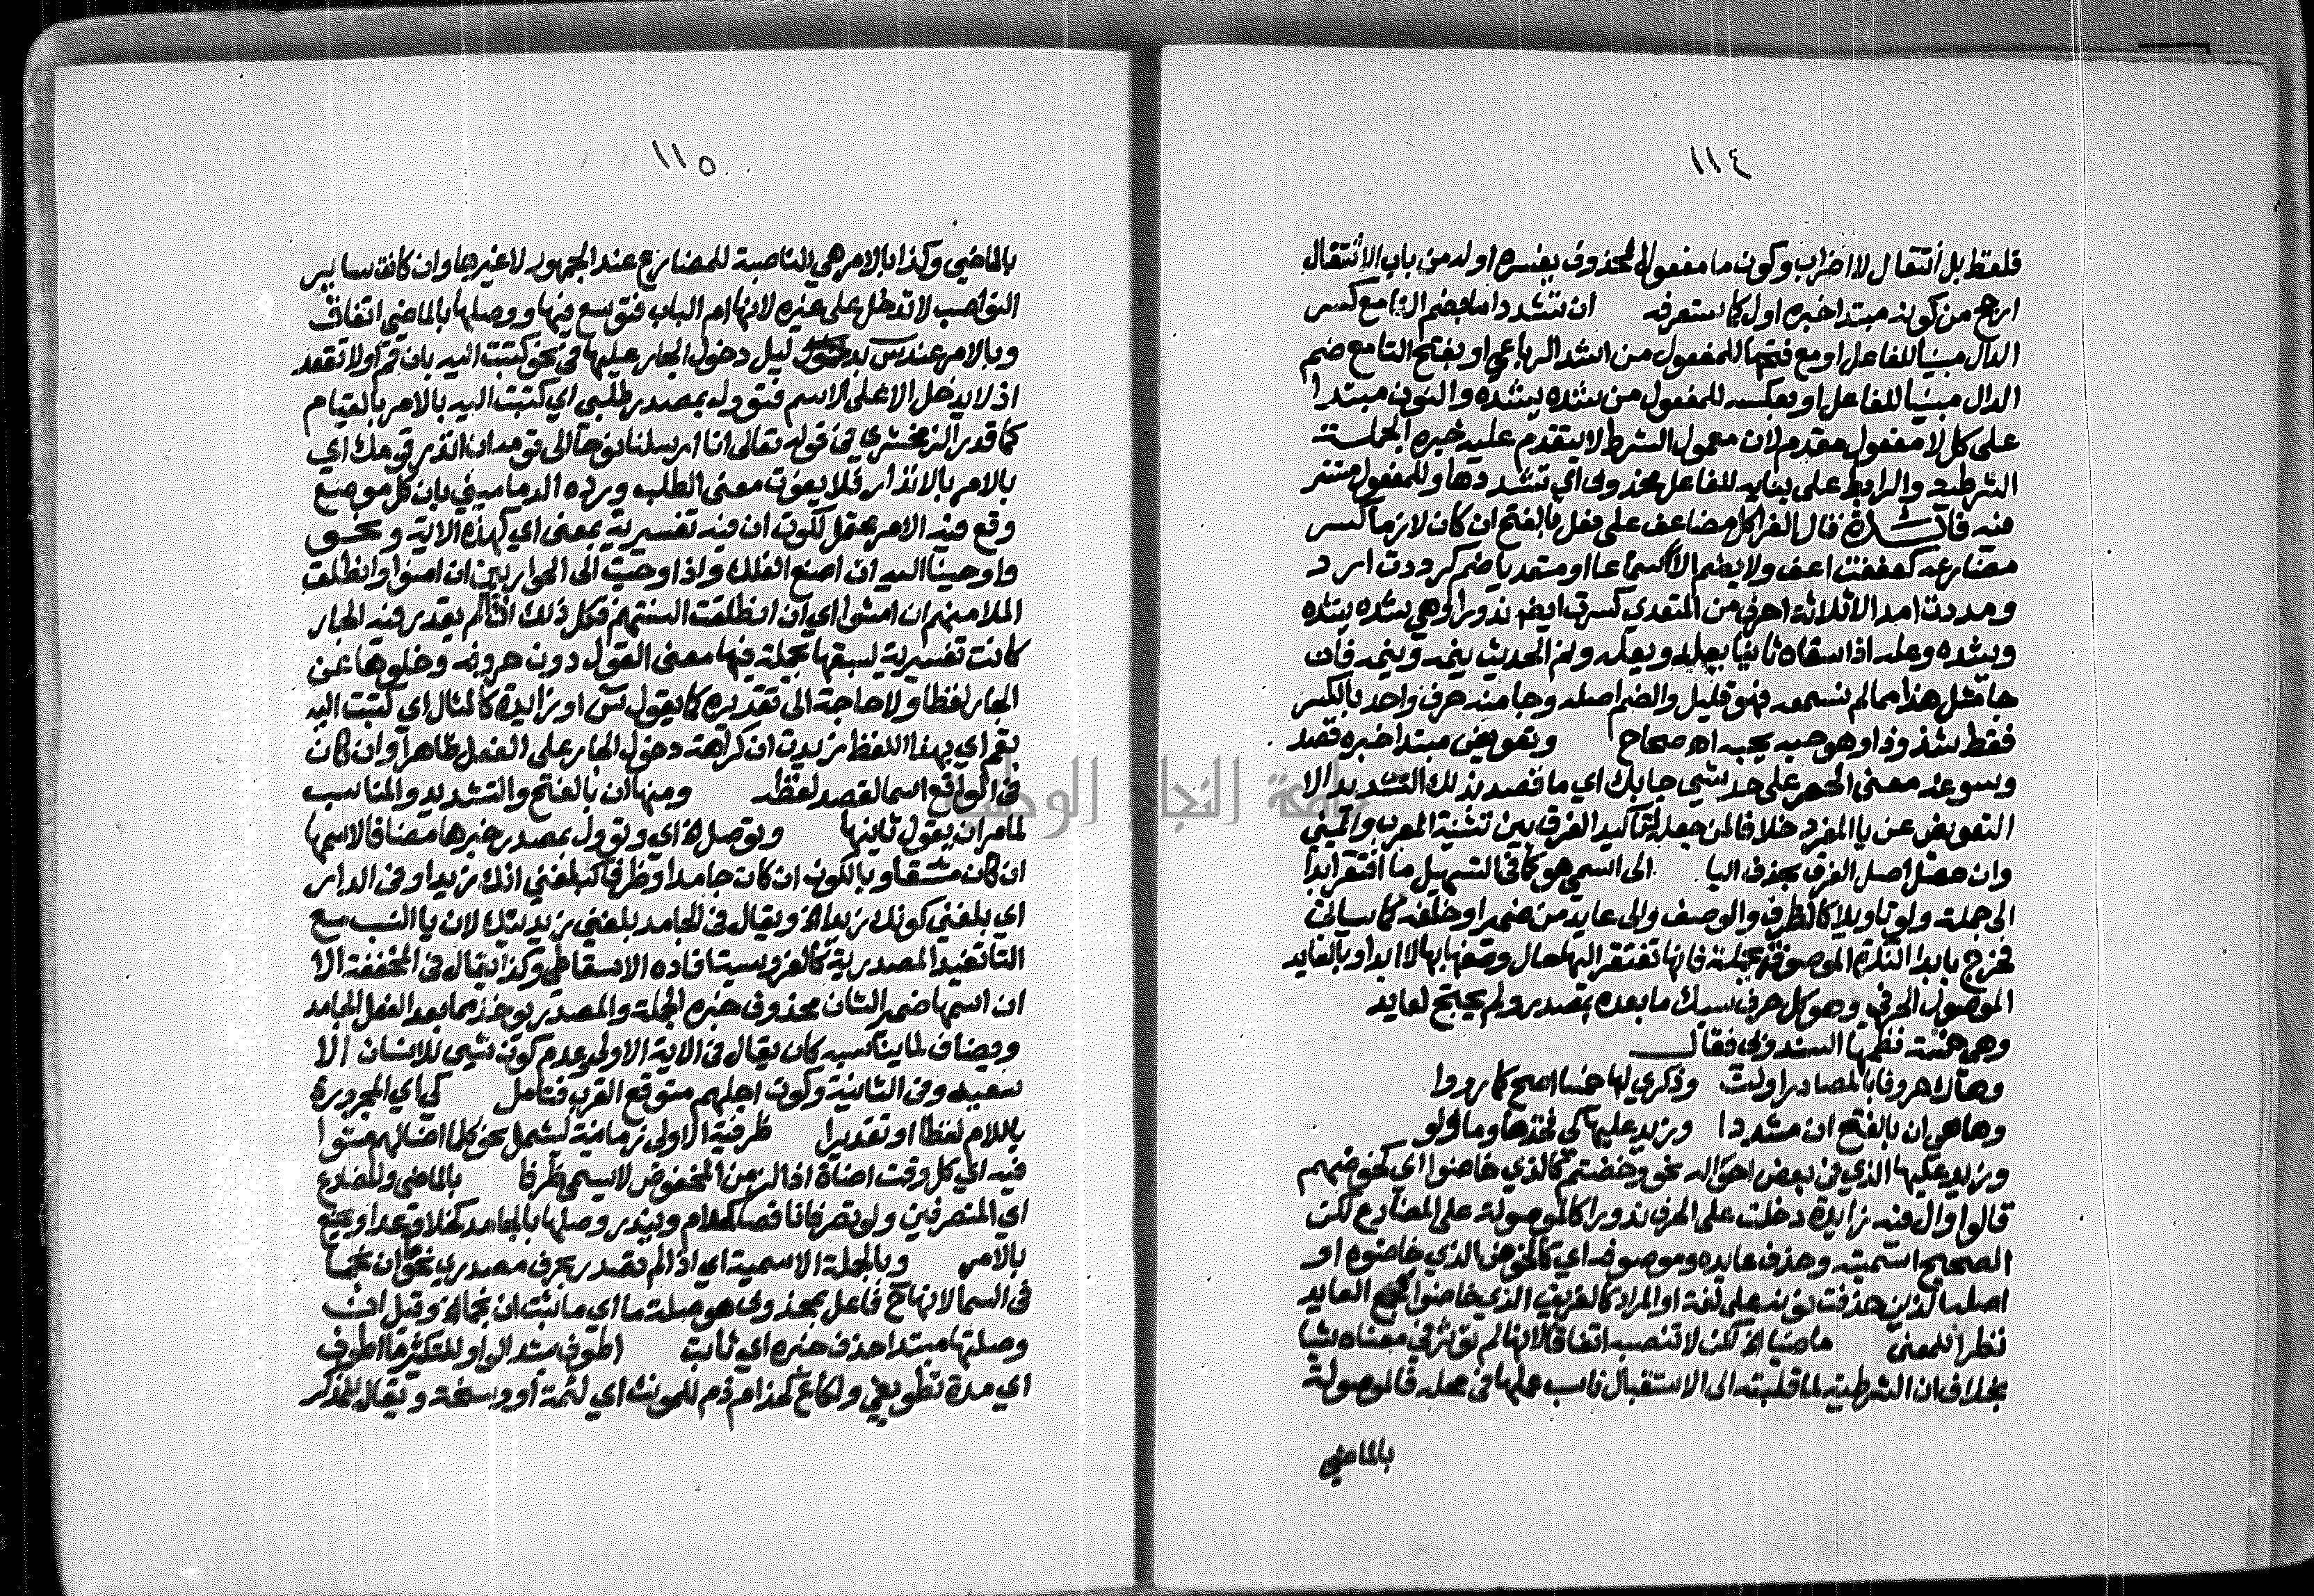 ١١٤
فلغط بل انتقال لا اضراب وكون ما مفعولا لمحذوف يفسره اوله من باب الاشتغال
ارجح من كونه مبتدا خبره اول كما ستعرفه ان تشدد اما بضم التا مع كسر
الدال مبنيا للفاعل او مع فتحها للمفعول من اشد الرباعي او بفتح التا مع ضم
الدال مبنيا للفاعل او بعكسه للمفعول من شده يشده والنون مبتدا
على كل لا مفعول مقدم لان معمول الشرط لا يتقدم عليه خبره الجملة
الشرطية والرابط على بنايه للفاعل محذوف اي تشددها وللمفعول مستتر
فيه فائدة قال الفرا كل مضاعف على فعل بالفتح ان كان لازما كسر
مضارعه كعففت اعف ولا يضم الا سماعا او متعديا ضم كرددت ارد
ومددت امد الا ثلاثة احرف من المتعدي كسرت ايضا ندورا وهي شده يشده
ويشده وعله اذا سقاه ثانيا يعله ويعله ونم الحديث ينمه وينمه فان
جا مثل هذا مما لم نسمعه فهو قليل والضم اصله وجا منه حرف واحد بالكسر
فقط شذوذا وهو حبه يحبه اه صحاح وتعويض مبتدا خبره قصد
وسوغه معنى الحصر على حد شي جا بك اي ما قصد بذلك التشديد الا
التعويض عن يا المفرد خلافا لمن جعله لتاكيد الفرق بين تثنية المعرب والمبني
وان حصل اصل الفرق بحذف اليا الى اسمي هو كما في التسهيل ما افتقر ابدا
الى جملة ولو تاويلا كالظرف والوصف والى عايد من ضمير او خلفه كما سياتي
فخرج بابدا النكرة الموصوفة بجملة فانها تفتقر اليها حال وصفها بها لا ابدا وبالعايد
الموصول الحرفي وهو كل حرف سبك ما بعده بمصدر ولم يحتج لعايد
وهي خمسة نظمها السندوبي فقال
وهاك حروفا بالمصادر اولت وذكري لها خمسا اصح كما رووا
وها هي ان بالفتح ان مشددا وزيد عليها كي فخذها وما ولو
وزيد عليها الذي في بعض احواله نحو وخضتم كالذي خاضوا اي كخوضهم
قالوا وال فيه زايدة دخلت على الحرف ندورا كالموصولة على المضارع لكن
الصحيح اسميته وحذف عايده وموصوفه اي كالخوض الذي خاضوه او
اصله الذين حذفت نونه على لغة او المراد كالفريق الذي خاضوا فجمع العايد
نظرا للمعنى ماضيا الخ لكن لا تنصبه اتفاقا لانها لم تؤثر في معناه شيا
بخلاف ان الشرطية لما قلبته الى الاستقبال ناسب عملها في محله فالموصولة
بالماضي
١١٥
بالماضي وكذا بالامر هي الناصبة للمضارع عند الجمهور لا غيرها وان كانت ساير
النواصب لا تدخل على غيره لانها ام الباب فتوسع فيها ووصلها بالماضي اتفاق
وبالامر عند س بدليل دخول الجار عليها في نحو كتبت اليه بان قم او لا تقعد
اذ لا يدخل الا على الاسم فتؤوله بمصدر طلبي اي كتبت اليه بالامر بالقيام
كما قدر الزمخشري في قوله تعالى انا ارسلنا نوحا الى قومه ان انذر قومك اي
بالامر بالانذار فلا يفوت معنى الطلب ورده الدماميني بان كل موضع
وقع فيه الامر محتمل لكون ان فيه تفسيرية بمعنى اي كهذه الاية ونحو
واوحينا اليه ان اصنع الفلك واذ اوحيت الى الحواريين ان امنوا وانطلق
الملا منهم ان امشوا اي ان انطلقت السنتهم فكل ذلك ان لم يقدر فيه الجار
كانت تفسيرية لسبقها بجملة فيها معنى القول دون حروفه وخلوها عن
الجار لفظا ولا حاجة الى تقديره كما يقول س او زايدة كالمثال اي كتبت اليه
بقم اي بهذا اللفظ فزيدت ان كراهة دخول الجار على الفعل ظاهرا وان كان
في الواقع اسما لقصد لفظه ومنها ان بالفتح والتشديد والمناسب
لما مر ان يقول ثانيها وتوصل الخ اي وتؤول بمصدر خبرها مضافا لاسمها
ان كان مشتقا وبالكون ان كان جامدا او ظرفا كبلغني انك زيد او في الدار
اي بلغني كونك زيدا الخ ويقال في الجامد بلغني زيديتك لان يا النسب مع
التا تفيد المصدرية كالفروسية افاده الاسقاطي وكذا يقال في المخففة الا
ان اسمها ضمير الشان محذوف خبره الجملة والمصدر يوخذ مما بعد الفعل الجامد
ويضاف لما يناسبه كان يقال في الاية الاولى عدم كون شي للانسان الا
سعيه وفي الثانية وكون اجلهم متوقع القرب فتامل كي اي المجرورة
باللام لفظا او تقديرا ظرفية الاولى زمانية لتشمل نحو كلما اضا لهم مشوا
فيه اي كل وقت اضاة اذ الزمن المخفوض لا يسمى ظرفا بالماضي وللمضارع
اي المتصرفين ولو تصرفا ناقصا كدام ويندر وصلها بالجامد كخلا وعدا ويمتنع
بالامر وبالجملة الاسمية اي اذا لم تصدر بحرف مصدري نحو ما ان نجما
في السما لانها ح فاعل بمحذوف هو صلة ما اي ما ثبت ان نجما الخ وقيل ان
وصلتها مبتدا حذف خبره اي ثابت اطوف بشد الواو للتكثير ما اطوف
اي مدة تطويفي ولكاع كحذام ذم للمونث اي لئيمة او وسخة ويقال للمذكر